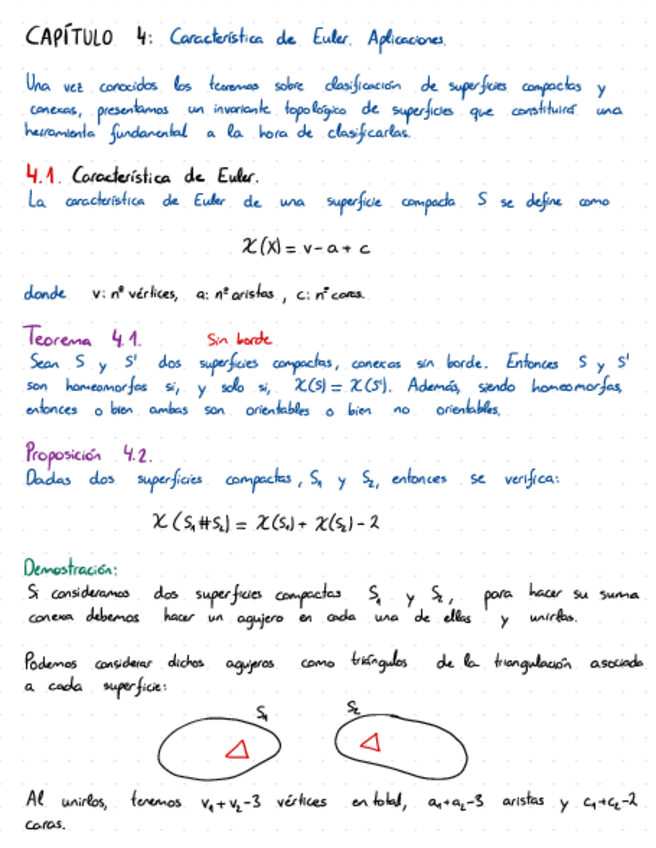 CAPÍTULO 4: Característica de Euler. Aplicaciones.
Una vez conocidos los teoremas sobre clasificación de superficies compactas y
conexas, presentamos un invariante topológico de superficies que constituirá una
herramienta fundamental a la hora de clasificarlas.
4.1. Característica de Euler.
La característica de Euler de una superficie compacta S se define como
χ(X) = v - a + c
donde v: nº vértices, a: nº aristas, c: nº caras.
Teorema 4.1. Sin borde
Sean S y S' dos superficies compactas, conexas sin borde. Entonces S y S'
son homeomorfas si, y solo si, χ(S) = χ(S'). Además, siendo homeomorfas,
entonces o bien ambas son orientables o bien no orientables.
Proposición 4.2.
Dadas dos superficies compactas, S₁ y S₂, entonces se verifica:
χ(S₁#S₂) = χ(S₁) + χ(S₂) - 2
Demostración:
Si consideramos dos superficies compactas S₁ y S₂, para hacer su suma
conexa debemos hacer un agujero en cada una de ellas y unirlas.
Podemos considerar dichos agujeros como triángulos de la triangulación asociada
a cada superficie:
S₁ S₂
Al unirlos, tenemos v₁+v₂-3 vértices en total, a₁+a₂-3 aristas y c₁+c₂-2
caras.